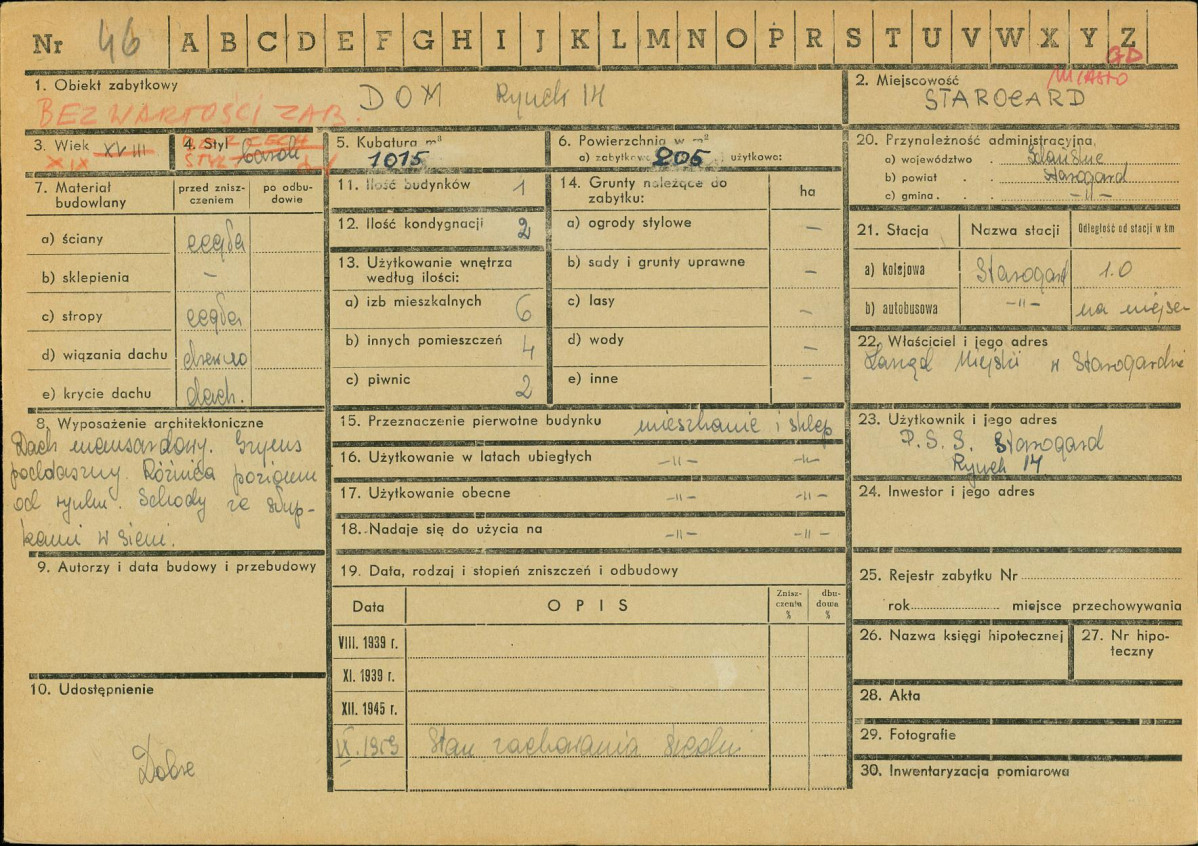 Nr 46 A B C D E F G H I J K L M N O P R S T U V W X Y Z
GD
1. Obiekt zabytkowy DOM Rynek 14
BEZ WARTOŚCI ZAB.
2. Miejscowość MIASTO
STAROGARD
3. Wiek XVIII
XIX
4. Styl barok
5. Kubatura m³
1015
6. Powierzchnia w m²
a) zabytkowa 206 użytkowo:
7. Materiał budowlany
przed zniszczeniem
po odbudowie
a) ściany cegła
b) sklepienia –
c) stropy cegła
d) wiązania dachu drewno
e) krycie dachu dach.
8. Wyposażenie architektoniczne
Dach mansardowy. Gzyms
poddaszny. Różnica poziomu
od rynku. Schody ze słup-
kami w sieni.
9. Autorzy i data budowy i przebudowy
10. Udostępnienie
Dobre
11. Ilość budynków 1
12. Ilość kondygnacji 2
13. Użytkowanie wnętrza
według ilości:
a) izb mieszkalnych 6
b) innych pomieszczeń 4
c) piwnic 2
14. Grunty należące do
zabytku:
ha
a) ogrody stylowe –
b) sady i grunty uprawne –
c) lasy –
d) wody –
e) inne –
15. Przeznaczenie pierwotne budynku mieszkanie i sklep
16. Użytkowanie w latach ubiegłych –"– –"–
17. Użytkowanie obecne –"– –"–
18. Nadaje się do użycia na –"– –"–
19. Data, rodzaj i stopień zniszczeń i odbudowy
Data
OPIS
Zniszczenia %
dbudowa %
VIII. 1939 r.
XI. 1939 r.
XII. 1945 r.
IX. 1959 Stan zachowania średni
20. Przynależność administracyjna
a) województwo . Gdańskie
b) powiat . . Starogard
c) gmina . . –"–
21. Stacja
Nazwa stacji
Odległość od stacji w km
a) kolejowa Starogard 1.0
b) autobusowa –"– na miejsc
22. Właściciel i jego adres
Zarząd Miejski w Starogardzie
23. Użytkownik i jego adres
P.S.S. Starogard
Rynek 14
24. Inwestor i jego adres
25. Rejestr zabytku Nr
rok miejsce przechowywania
26. Nazwa księgi hipotecznej
27. Nr hipo-
teczny
28. Akta
29. Fotografie
30. Inwentaryzacja pomiarowa